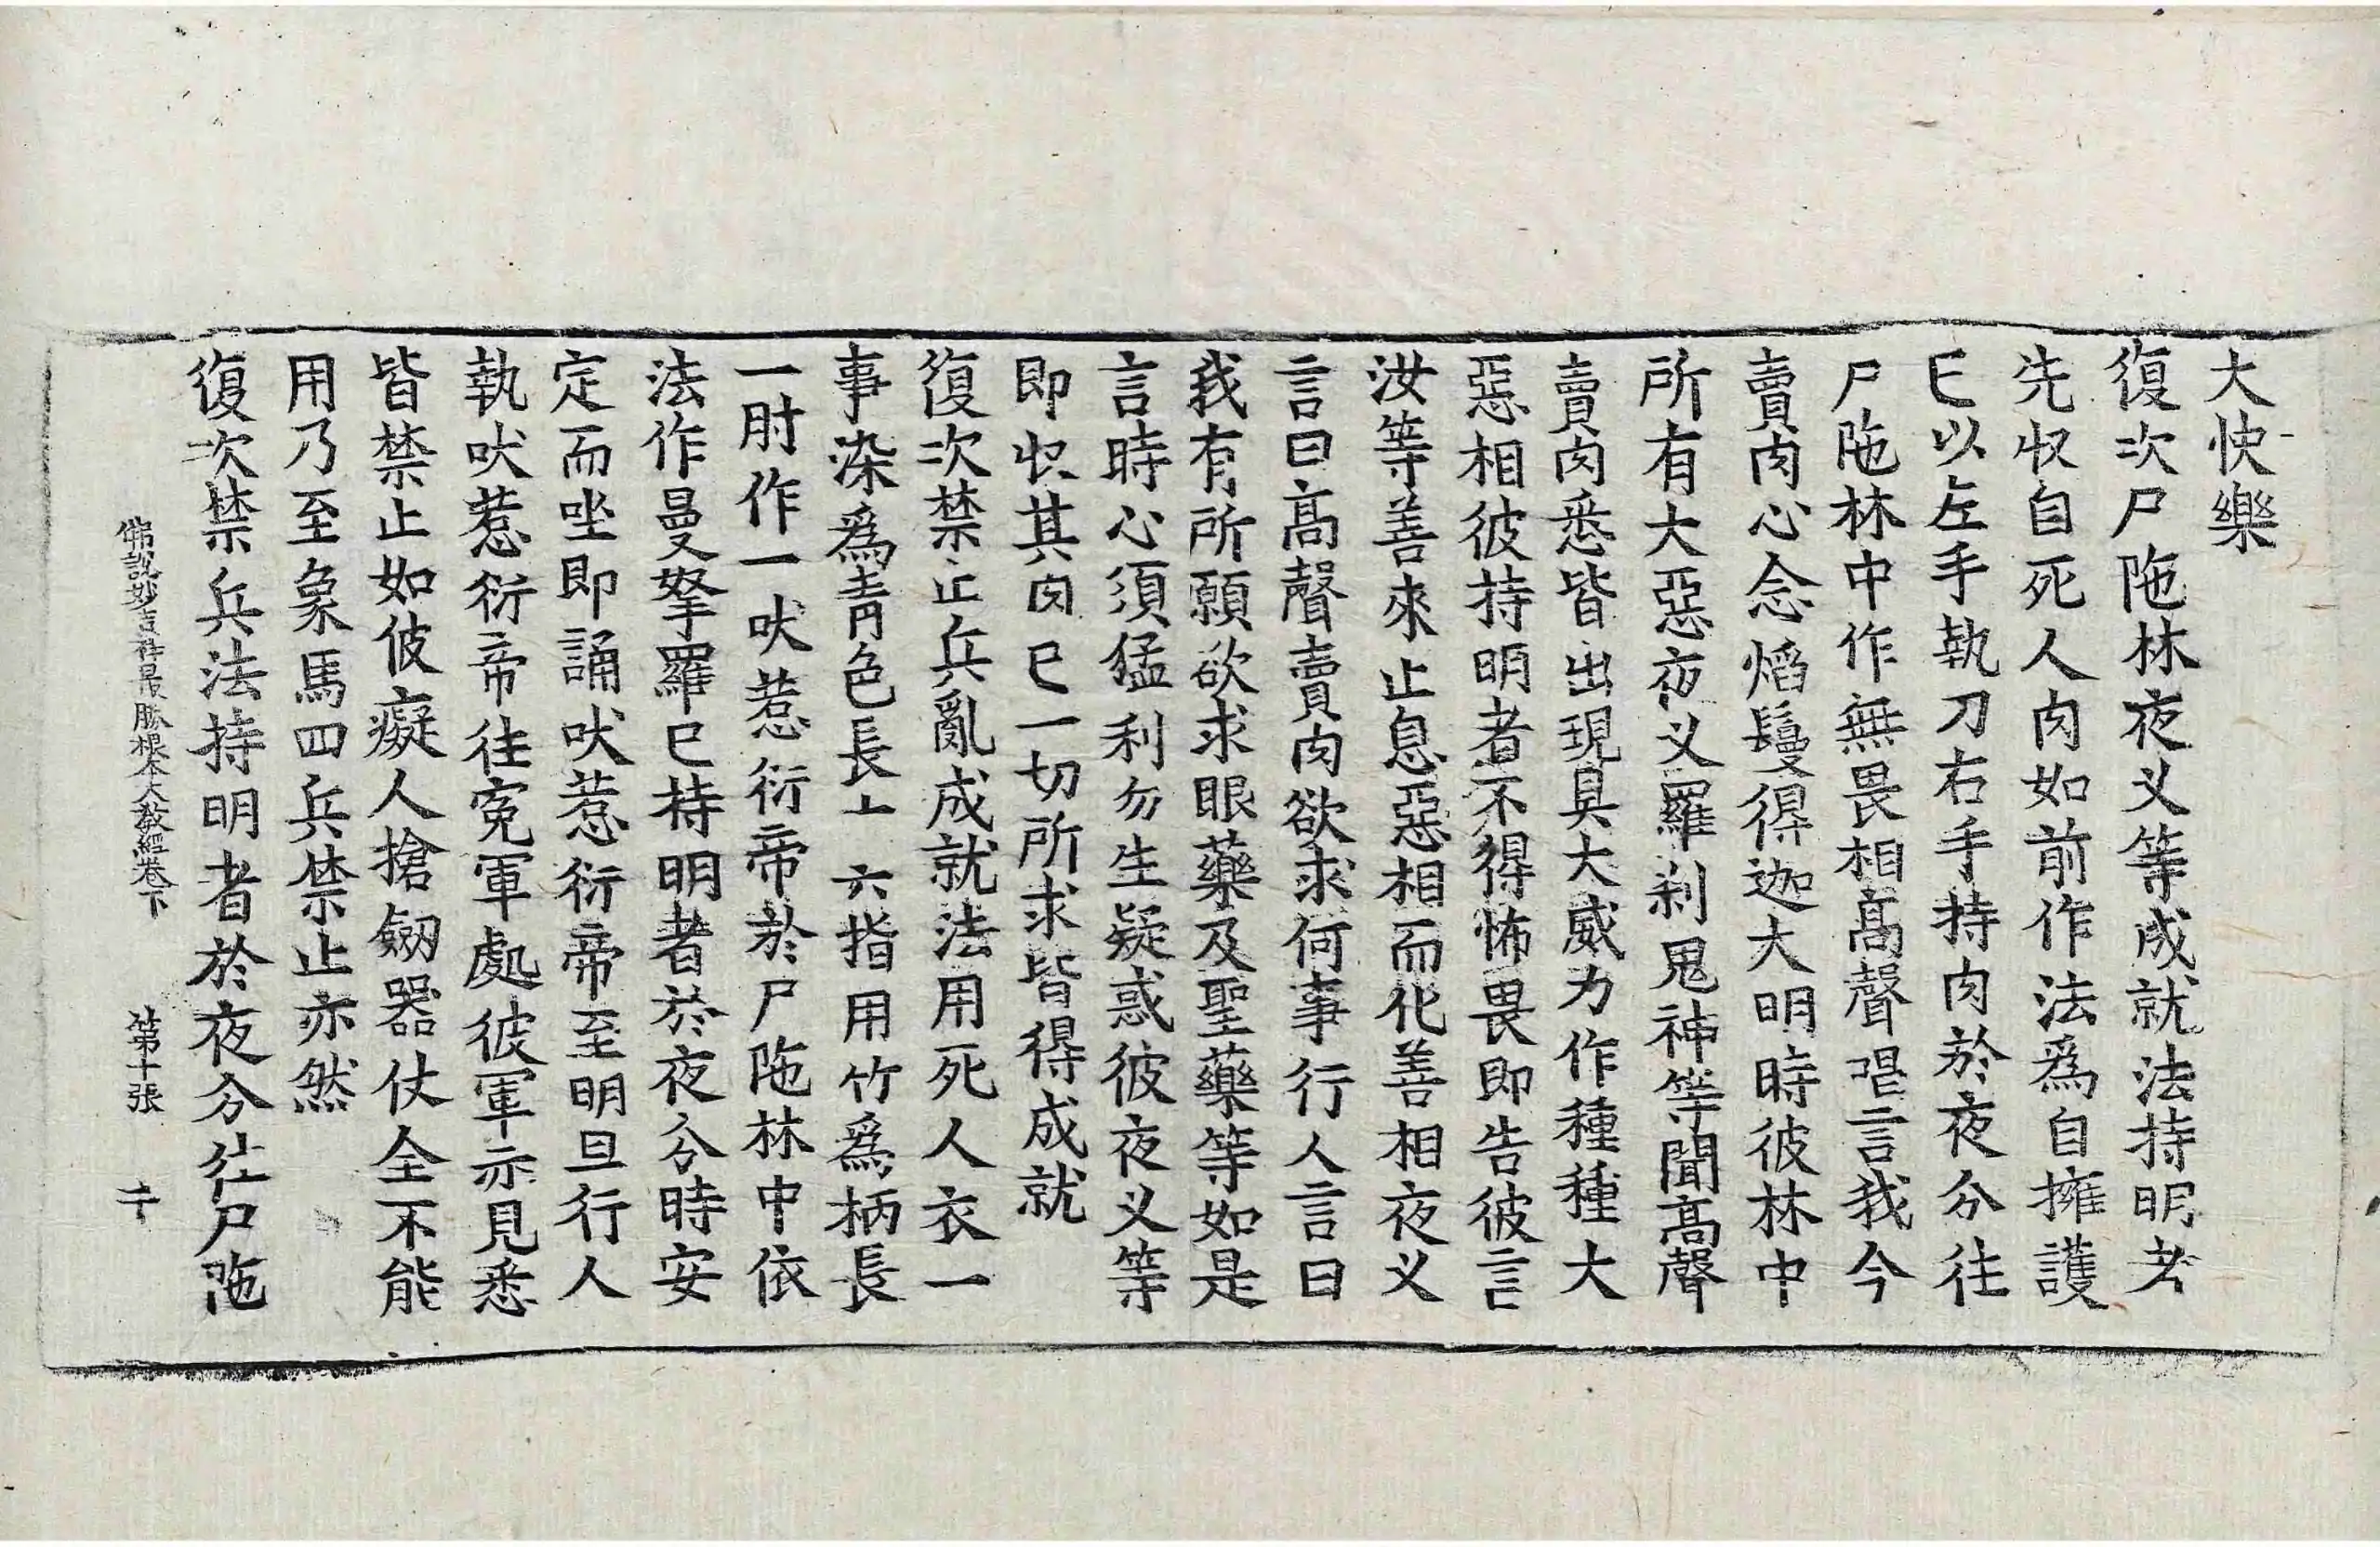 大快樂
復次尸陁林夜叉等成就法持明者
先收自死人肉如前作法爲自擁護
已以左手執刀右手持肉於夜分往
尸陁林中作無畏相高聲唱言我今
賣肉心念焰鬘得迦大明時彼林中
所有大惡夜叉羅刹鬼神等聞高聲
賣肉悉皆出現具大威力作種種大
惡相彼持明者不得怖畏即告彼言
汝等善來止息惡相而化善相夜叉
言曰高聲賣肉欲求何事行人言曰
我有所願欲求眼藥及聖藥等如是
言時心須猛利勿生疑惑彼夜叉等
即收其肉已一切所求皆得成就
復次禁止兵亂成就法用死人衣一
事染爲青色長 六指用竹爲柄長
一肘作一吠惹衍帝於尸陁林中依
法作曼拏羅已持明者於夜分時安
定而坐即誦吠惹衍帝至明旦行人
執吠惹衍帝往寃軍處彼軍亦見悉
皆禁止如彼癡人搶劒器仗全不能
用乃至象馬四兵禁止亦然
復次禁兵法持明者於夜分往尸陁
佛說妙吉祥最勝根本大教經卷下 第十張